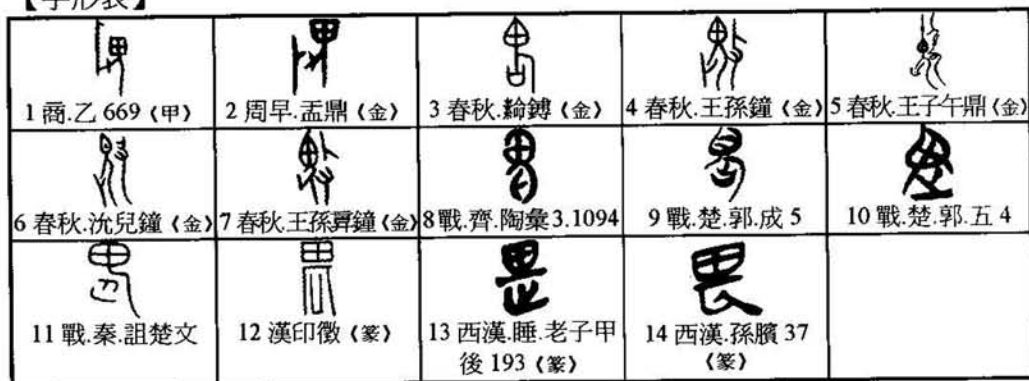 【字形表】
1 商.乙 669《甲》 2 周早.盂鼎《金》 3 春秋.𦅫鎛《金》 4 春秋.王孫鐘《金》 5 春秋.王子午鼎《金》
6 春秋.沇兒鐘《金》 7 春秋.王孫𢍰鐘《金》 8 戰.齊.陶彙 3.1094 9 戰.楚.郭.成 5 10 戰.楚.郭.五 4
11 戰.秦.詛楚文 12 漢印徵《篆》 13 西漢.睡.老子甲 14 西漢.孫臏 37
後 193《篆》 《篆》